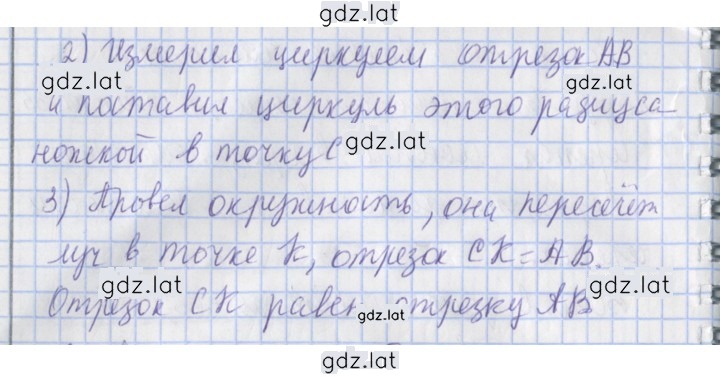 gdz.lat
2) Измерил циркулем отрезок AB
gdz.lat gdz.lat
и поставил циркуль этого радиуса
ножкой в точку C
gdz.lat
3) Провел окружность, она пересечёт
gdz.lat gdz.lat
луч в точке K, отрезок CK = AB.
gdz.lat gdz.lat
Отрезок CK равен отрезку AB
gdz.lat
gdz.lat